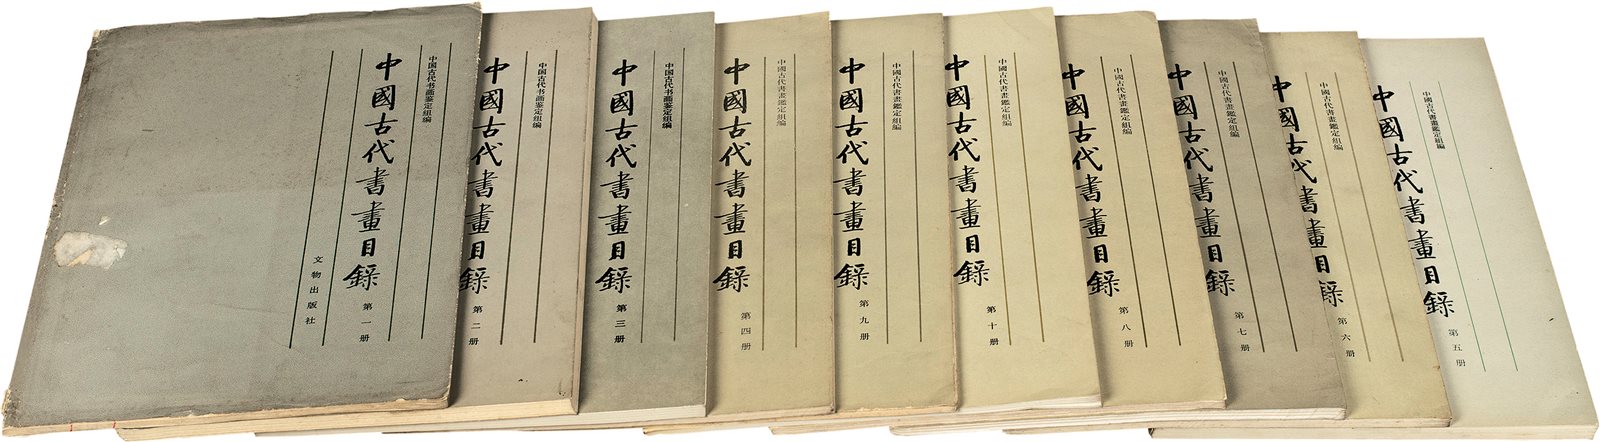 中国古代书画鉴定组编
中國古代書畫目錄
第一册
文物出版社
中国古代书画鉴定组编
中國古代書畫目錄
第二册
中国古代书画鉴定组编
中國古代書畫目錄
第三册
中國古代書畫鑑定組编
中國古代書畫目錄
第四册
中國古代書畫鑑定組编
中國古代書畫目錄
第九册
中國古代書畫鑑定組编
中國古代書畫目錄
第十册
中國古代書畫鑑定組编
中國古代書畫目錄
第八册
中國古代書畫鑑定組编
中國古代書畫目錄
第七册
中國古代書畫鑑定組编
中國古代書畫目錄
第六册
中國古代書畫鑑定組編
中國古代書畫目錄
第五册